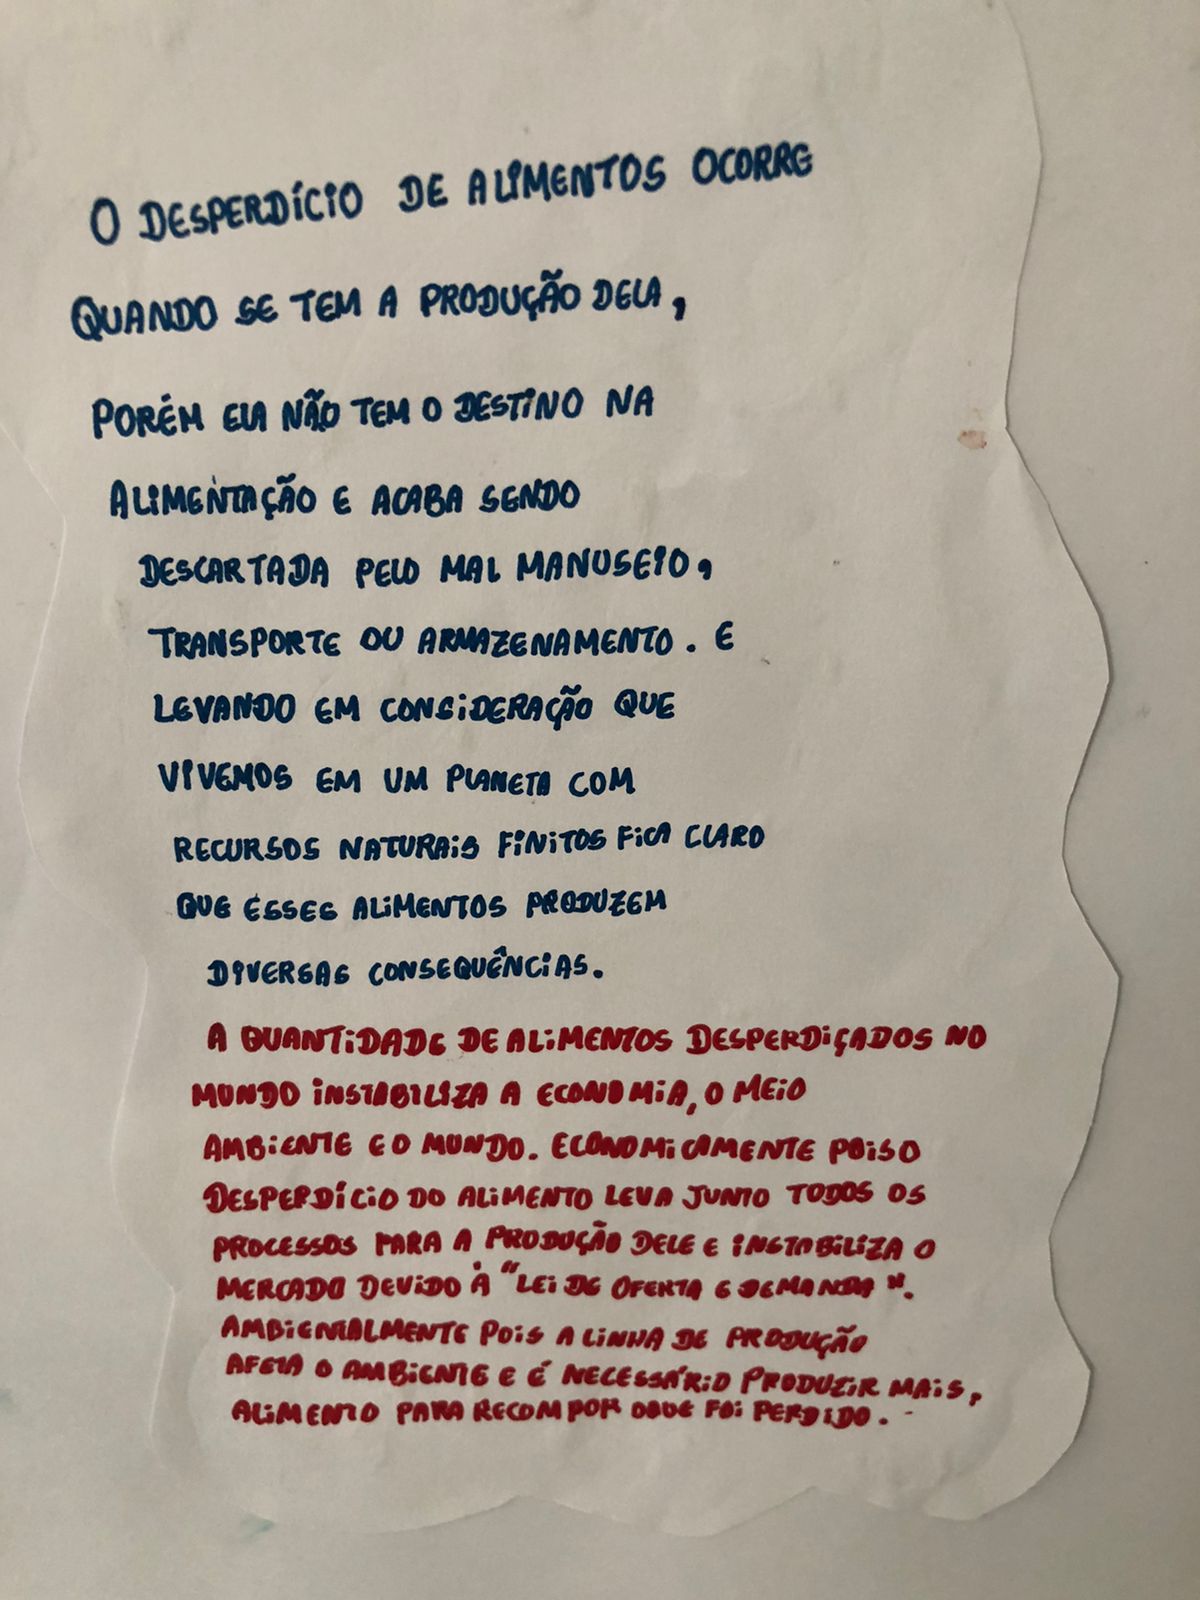 O DESPERDÍCIO DE ALIMENTOS OCORRE
QUANDO SE TEM A PRODUÇÃO DELA,
PORÉM ELA NÃO TEM O DESTINO NA
ALIMENTAÇÃO E ACABA SENDO
DESCARTADA PELO MAL MANUSEIO,
TRANSPORTE OU ARMAZENAMENTO. E
LEVANDO EM CONSIDERAÇÃO QUE
VIVEMOS EM UM PLANETA COM
RECURSOS NATURAIS FINITOS FICA CLARO
QUE ESSES ALIMENTOS PRODUZEM
DIVERSAS CONSEQUÊNCIAS.
A QUANTIDADE DE ALIMENTOS DESPERDIÇADOS NO
MUNDO INSTABILIZA A ECONOMIA, O MEIO
AMBIENTE E O MUNDO. ECONOMICAMENTE POIS O
DESPERDÍCIO DO ALIMENTO LEVA JUNTO TODOS OS
PROCESSOS PARA A PRODUÇÃO DELE E INSTABILIZA O
MERCADO DEVIDO À "LEI DE OFERTA E DEMANDA".
AMBIENTALMENTE POIS A LINHA DE PRODUÇÃO
AFETA O AMBIENTE E É NECESSÁRIO PRODUZIR MAIS,
ALIMENTO PARA RECOMPOR O QUE FOI PERDIDO.